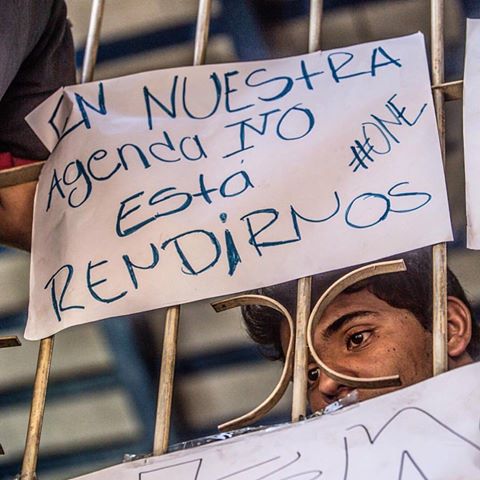 EN NUESTRA
AgENDA NO
Está
RENDIRNOS
#ONE